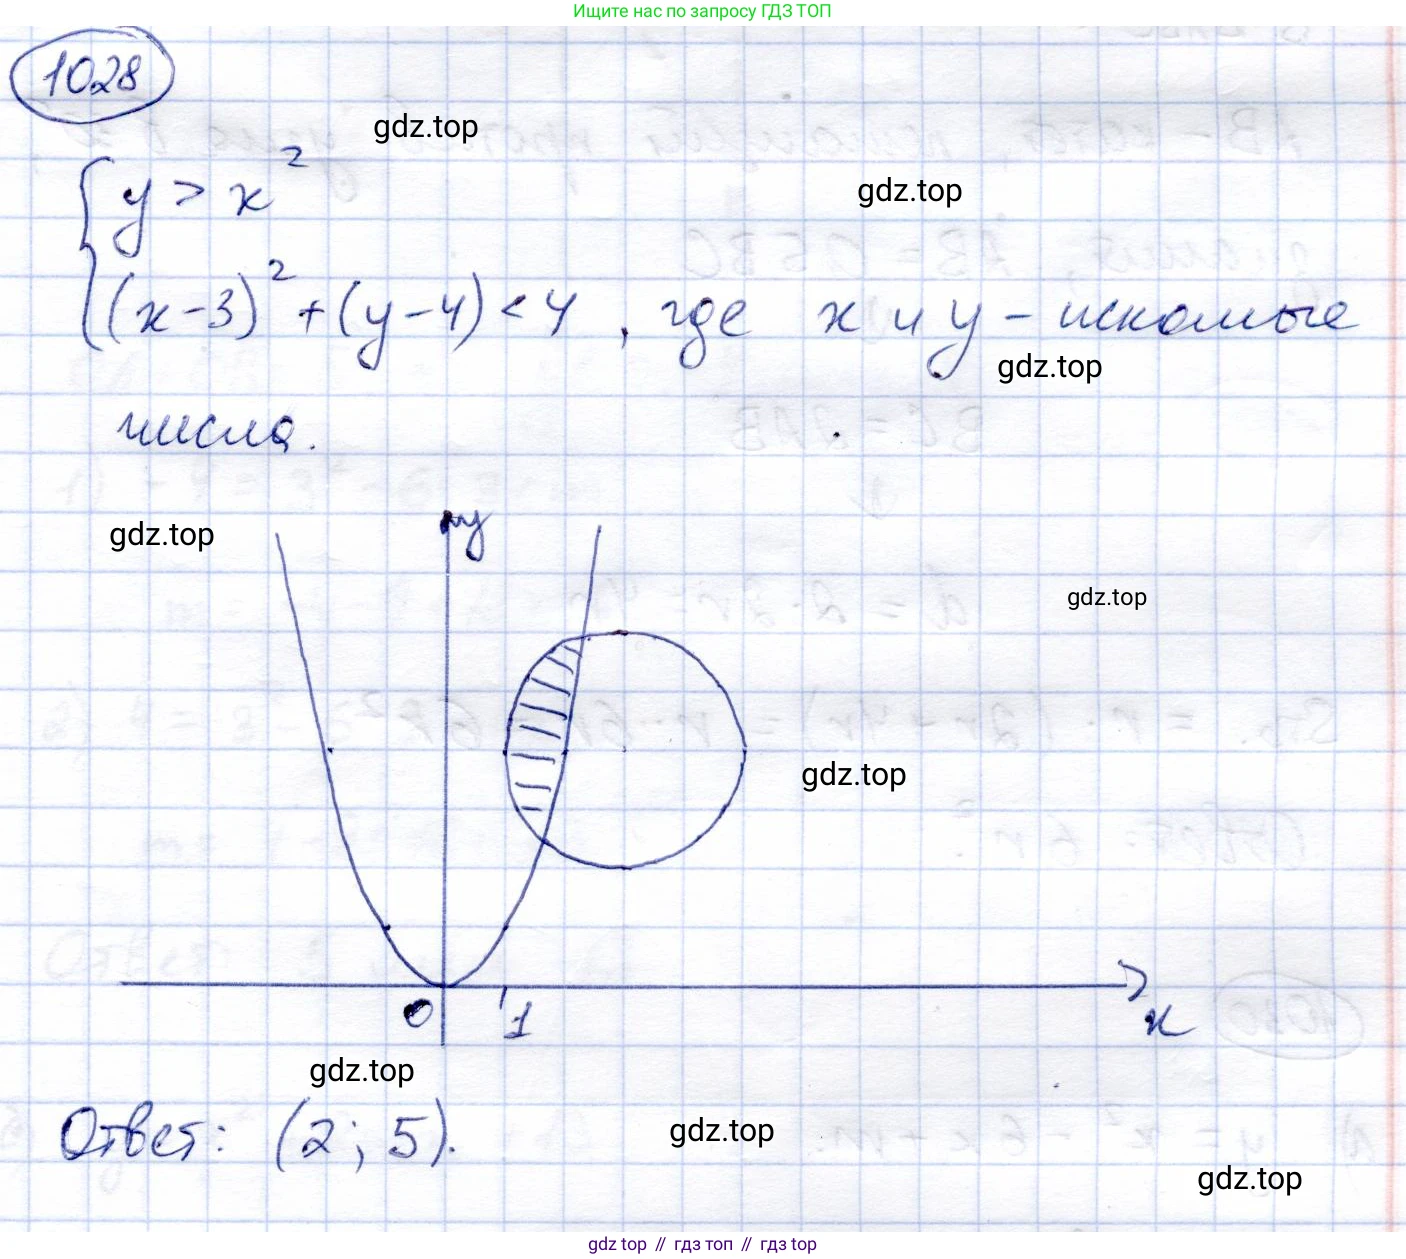 Ищите нас по запросу ГДЗ ТОП
1028
gdz.top
y > x²
gdz.top
(x-3)² + (y-4) < 4, где x и y - искомые
gdz.top
числа.
gdz.top
y
gdz.top
gdz.top
0
1
x
gdz.top
Ответ: (2; 5).
gdz.top
gdz.top
gdz top // гдз топ // gdz top